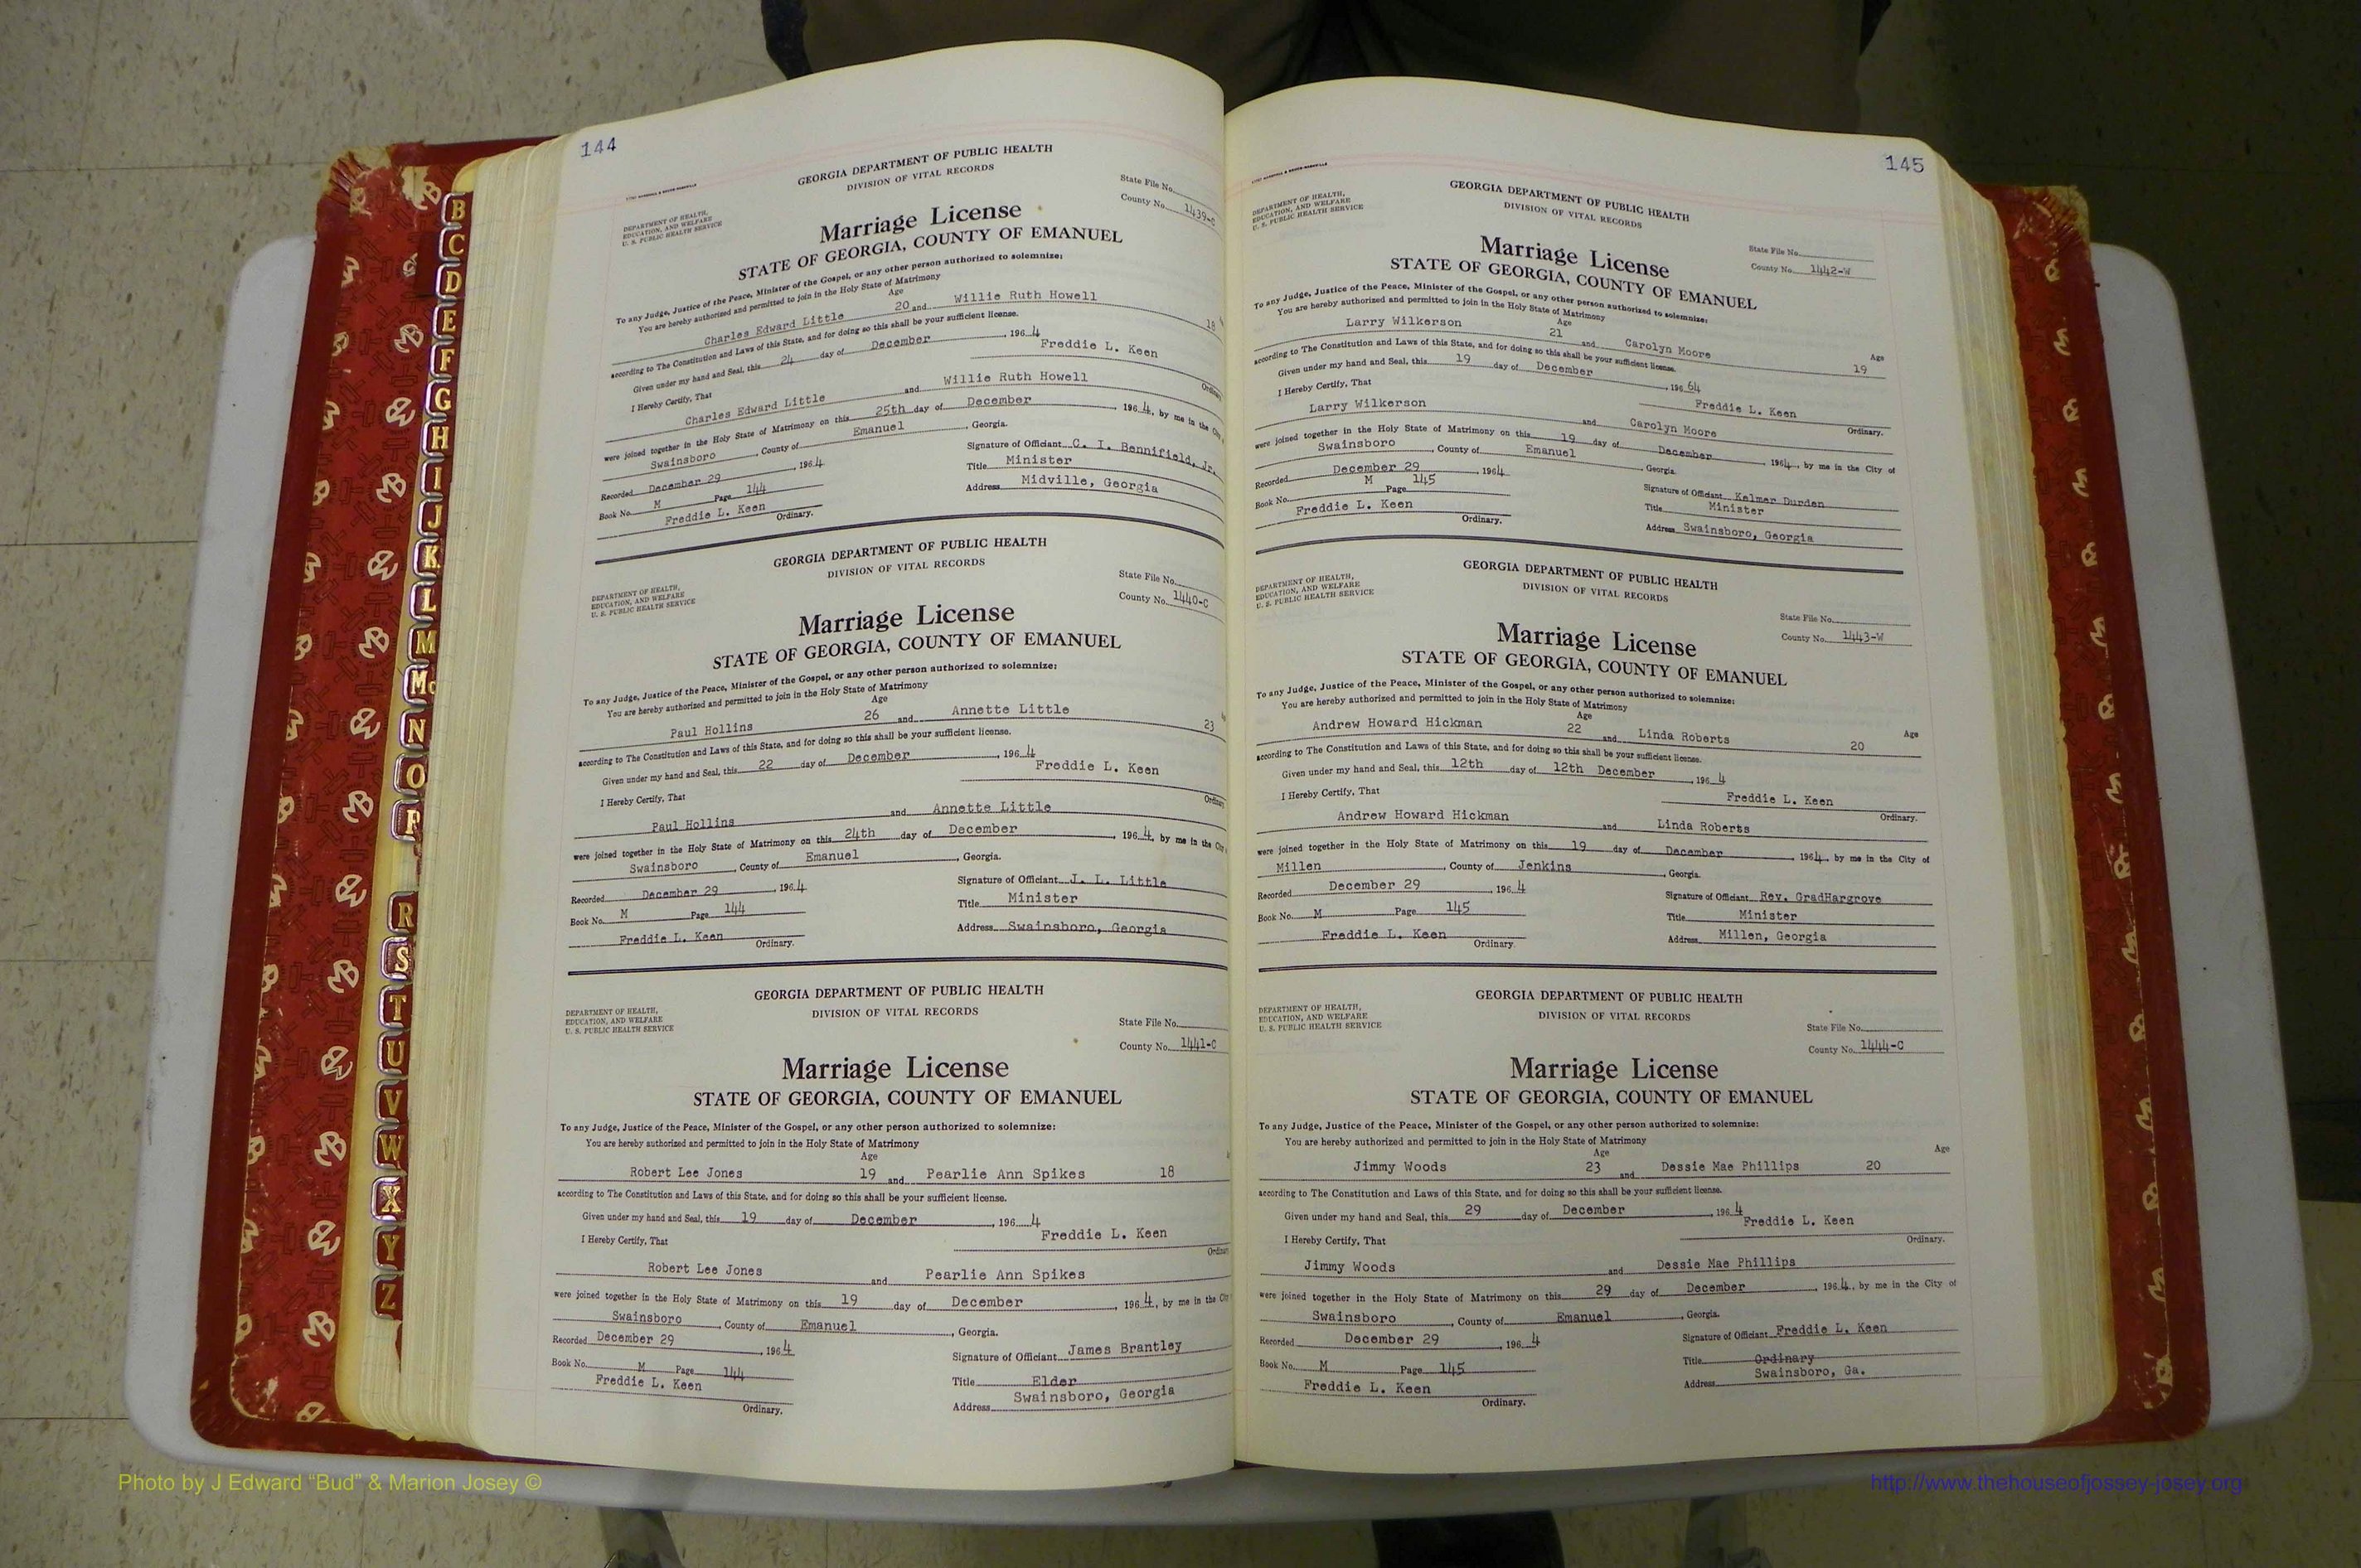 144
GEORGIA DEPARTMENT OF PUBLIC HEALTH
DIVISION OF VITAL RECORDS
DEPARTMENT OF HEALTH,
EDUCATION, AND WELFARE
U. S. PUBLIC HEALTH SERVICE
State File No.
County No. 1439-C
Marriage License
STATE OF GEORGIA, COUNTY OF EMANUEL
To any Judge, Justice of the Peace, Minister of the Gospel, or any other person authorized to solemnize:
You are hereby authorized and permitted to join in the Holy State of Matrimony
Age
Charles Edward Little 20 and Willie Ruth Howell 18
according to The Constitution and Laws of this State, and for doing so this shall be your sufficient license.
Given under my hand and Seal, this 24 day of December, 1964
Freddie L. Keen
I Hereby Certify, That
Charles Edward Little and Willie Ruth Howell
were joined together in the Holy State of Matrimony on this 25th day of December, 1964, by me in the
Swainsboro, County of Emanuel, Georgia.
Recorded December 29, 1964
Signature of Officiant C. I. Bennifield, Jr.
Book No. M Page 144
Title Minister
Freddie L. Keen
Address Midville, Georgia
Ordinary.
GEORGIA DEPARTMENT OF PUBLIC HEALTH
DIVISION OF VITAL RECORDS
DEPARTMENT OF HEALTH,
EDUCATION, AND WELFARE
U. S. PUBLIC HEALTH SERVICE
State File No.
County No. 1440-C
Marriage License
STATE OF GEORGIA, COUNTY OF EMANUEL
To any Judge, Justice of the Peace, Minister of the Gospel, or any other person authorized to solemnize:
You are hereby authorized and permitted to join in the Holy State of Matrimony
Age
Paul Hollins 26 and Annette Little 23
according to The Constitution and Laws of this State, and for doing so this shall be your sufficient license.
Given under my hand and Seal, this 22 day of December, 1964
Freddie L. Keen
I Hereby Certify, That
Paul Hollins and Annette Little
were joined together in the Holy State of Matrimony on this 24th day of December, 1964, by me in the
Swainsboro, County of Emanuel, Georgia.
Recorded December 29, 1964
Signature of Officiant J. L. Little
Book No. M Page 144
Title Minister
Freddie L. Keen
Ordinary.
Address Swainsboro, Georgia
GEORGIA DEPARTMENT OF PUBLIC HEALTH
DIVISION OF VITAL RECORDS
DEPARTMENT OF HEALTH,
EDUCATION, AND WELFARE
U. S. PUBLIC HEALTH SERVICE
State File No.
County No. 1441-C
Marriage License
STATE OF GEORGIA, COUNTY OF EMANUEL
To any Judge, Justice of the Peace, Minister of the Gospel, or any other person authorized to solemnize:
You are hereby authorized and permitted to join in the Holy State of Matrimony
Age
Robert Lee Jones 19 and Pearlie Ann Spikes 18
according to The Constitution and Laws of this State, and for doing so this shall be your sufficient license.
Given under my hand and Seal, this 19 day of December, 1964
Freddie L. Keen
I Hereby Certify, That
Robert Lee Jones and Pearlie Ann Spikes
were joined together in the Holy State of Matrimony on this 19 day of December, 1964, by me in the
Swainsboro, County of Emanuel, Georgia.
Recorded December 29, 1964
Signature of Officiant James Brantley
Book No. M Page 144
Title Elder
Freddie L. Keen
Ordinary.
Address Swainsboro, Georgia
145
GEORGIA DEPARTMENT OF PUBLIC HEALTH
DIVISION OF VITAL RECORDS
DEPARTMENT OF HEALTH,
EDUCATION, AND WELFARE
U. S. PUBLIC HEALTH SERVICE
State File No.
County No. 1442-W
Marriage License
STATE OF GEORGIA, COUNTY OF EMANUEL
To any Judge, Justice of the Peace, Minister of the Gospel, or any other person authorized to solemnize:
You are hereby authorized and permitted to join in the Holy State of Matrimony
Age Age
Larry Wilkerson 21 and Carolyn Moore 19
according to The Constitution and Laws of this State, and for doing so this shall be your sufficient license.
Given under my hand and Seal, this 19 day of December, 19664
Freddie L. Keen
Ordinary.
I Hereby Certify, That
Larry Wilkerson and Carolyn Moore
were joined together in the Holy State of Matrimony on this 19 day of December, 1964, by me in the City of
Swainsboro, County of Emanuel, Georgia.
Recorded December 29, 1964
Signature of Officiant Kelmer Durden
Book No. M Page 145
Title Minister
Freddie L. Keen
Ordinary.
Address Swainsboro, Georgia
GEORGIA DEPARTMENT OF PUBLIC HEALTH
DIVISION OF VITAL RECORDS
DEPARTMENT OF HEALTH,
EDUCATION, AND WELFARE
U. S. PUBLIC HEALTH SERVICE
State File No.
County No. 1443-W
Marriage License
STATE OF GEORGIA, COUNTY OF EMANUEL
To any Judge, Justice of the Peace, Minister of the Gospel, or any other person authorized to solemnize:
You are hereby authorized and permitted to join in the Holy State of Matrimony
Age Age
Andrew Howard Hickman 22 and Linda Roberts 20
according to The Constitution and Laws of this State, and for doing so this shall be your sufficient license.
Given under my hand and Seal, this 12th day of 12th December, 1964
Freddie L. Keen
Ordinary.
I Hereby Certify, That
Andrew Howard Hickman and Linda Roberts
were joined together in the Holy State of Matrimony on this 19 day of December, 1964, by me in the City of
Millen, County of Jenkins, Georgia.
Recorded December 29, 1964
Signature of Officiant Rev. GradHargrove
Book No. M Page 145
Title Minister
Freddie L. Keen
Ordinary.
Address Millen, Georgia
GEORGIA DEPARTMENT OF PUBLIC HEALTH
DIVISION OF VITAL RECORDS
DEPARTMENT OF HEALTH,
EDUCATION, AND WELFARE
U. S. PUBLIC HEALTH SERVICE
State File No.
County No. 1444-C
Marriage License
STATE OF GEORGIA, COUNTY OF EMANUEL
To any Judge, Justice of the Peace, Minister of the Gospel, or any other person authorized to solemnize:
You are hereby authorized and permitted to join in the Holy State of Matrimony
Age Age
Jimmy Woods 23 and Dessie Mae Phillips 20
according to The Constitution and Laws of this State, and for doing so this shall be your sufficient license.
Given under my hand and Seal, this 29 day of December, 1964
Freddie L. Keen
Ordinary.
I Hereby Certify, That
Jimmy Woods and Dessie Mae Phillips
were joined together in the Holy State of Matrimony on this 29 day of December, 1964, by me in the City of
Swainsboro, County of Emanuel, Georgia.
Recorded December 29, 1964
Signature of Officiant Freddie L. Keen
Book No. M Page 145
Title Ordinary
Freddie L. Keen
Ordinary.
Address Swainsboro, Ga.
B
C
D
E
F
G
H
I
J
K
L
M
Mc
N
O
P
R
S
T
U
V
W
X
Y
Z
Photo by J Edward “Bud” & Marion Josey ©
http://www.thehouseofjossey-josey.org